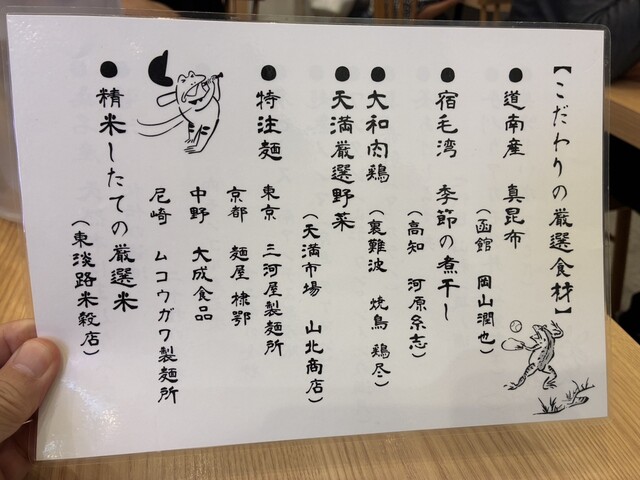 【こだわりの厳選食材】
●道南産 真昆布
(函館 岡山潤也)
●宿毛湾 季節の煮干し
(高知 河原糸志)
●大和肉鶏(裏難波 焼鳥 鶏尽)
●天満厳選野菜
(天満市場 山北商店)
●特注麺 東京 三河屋製麺所
京都 麺屋 棣鄂
中野 大成食品
尼崎 ムコウガワ製麺所
●精米したての厳選米
(東淡路米穀店)